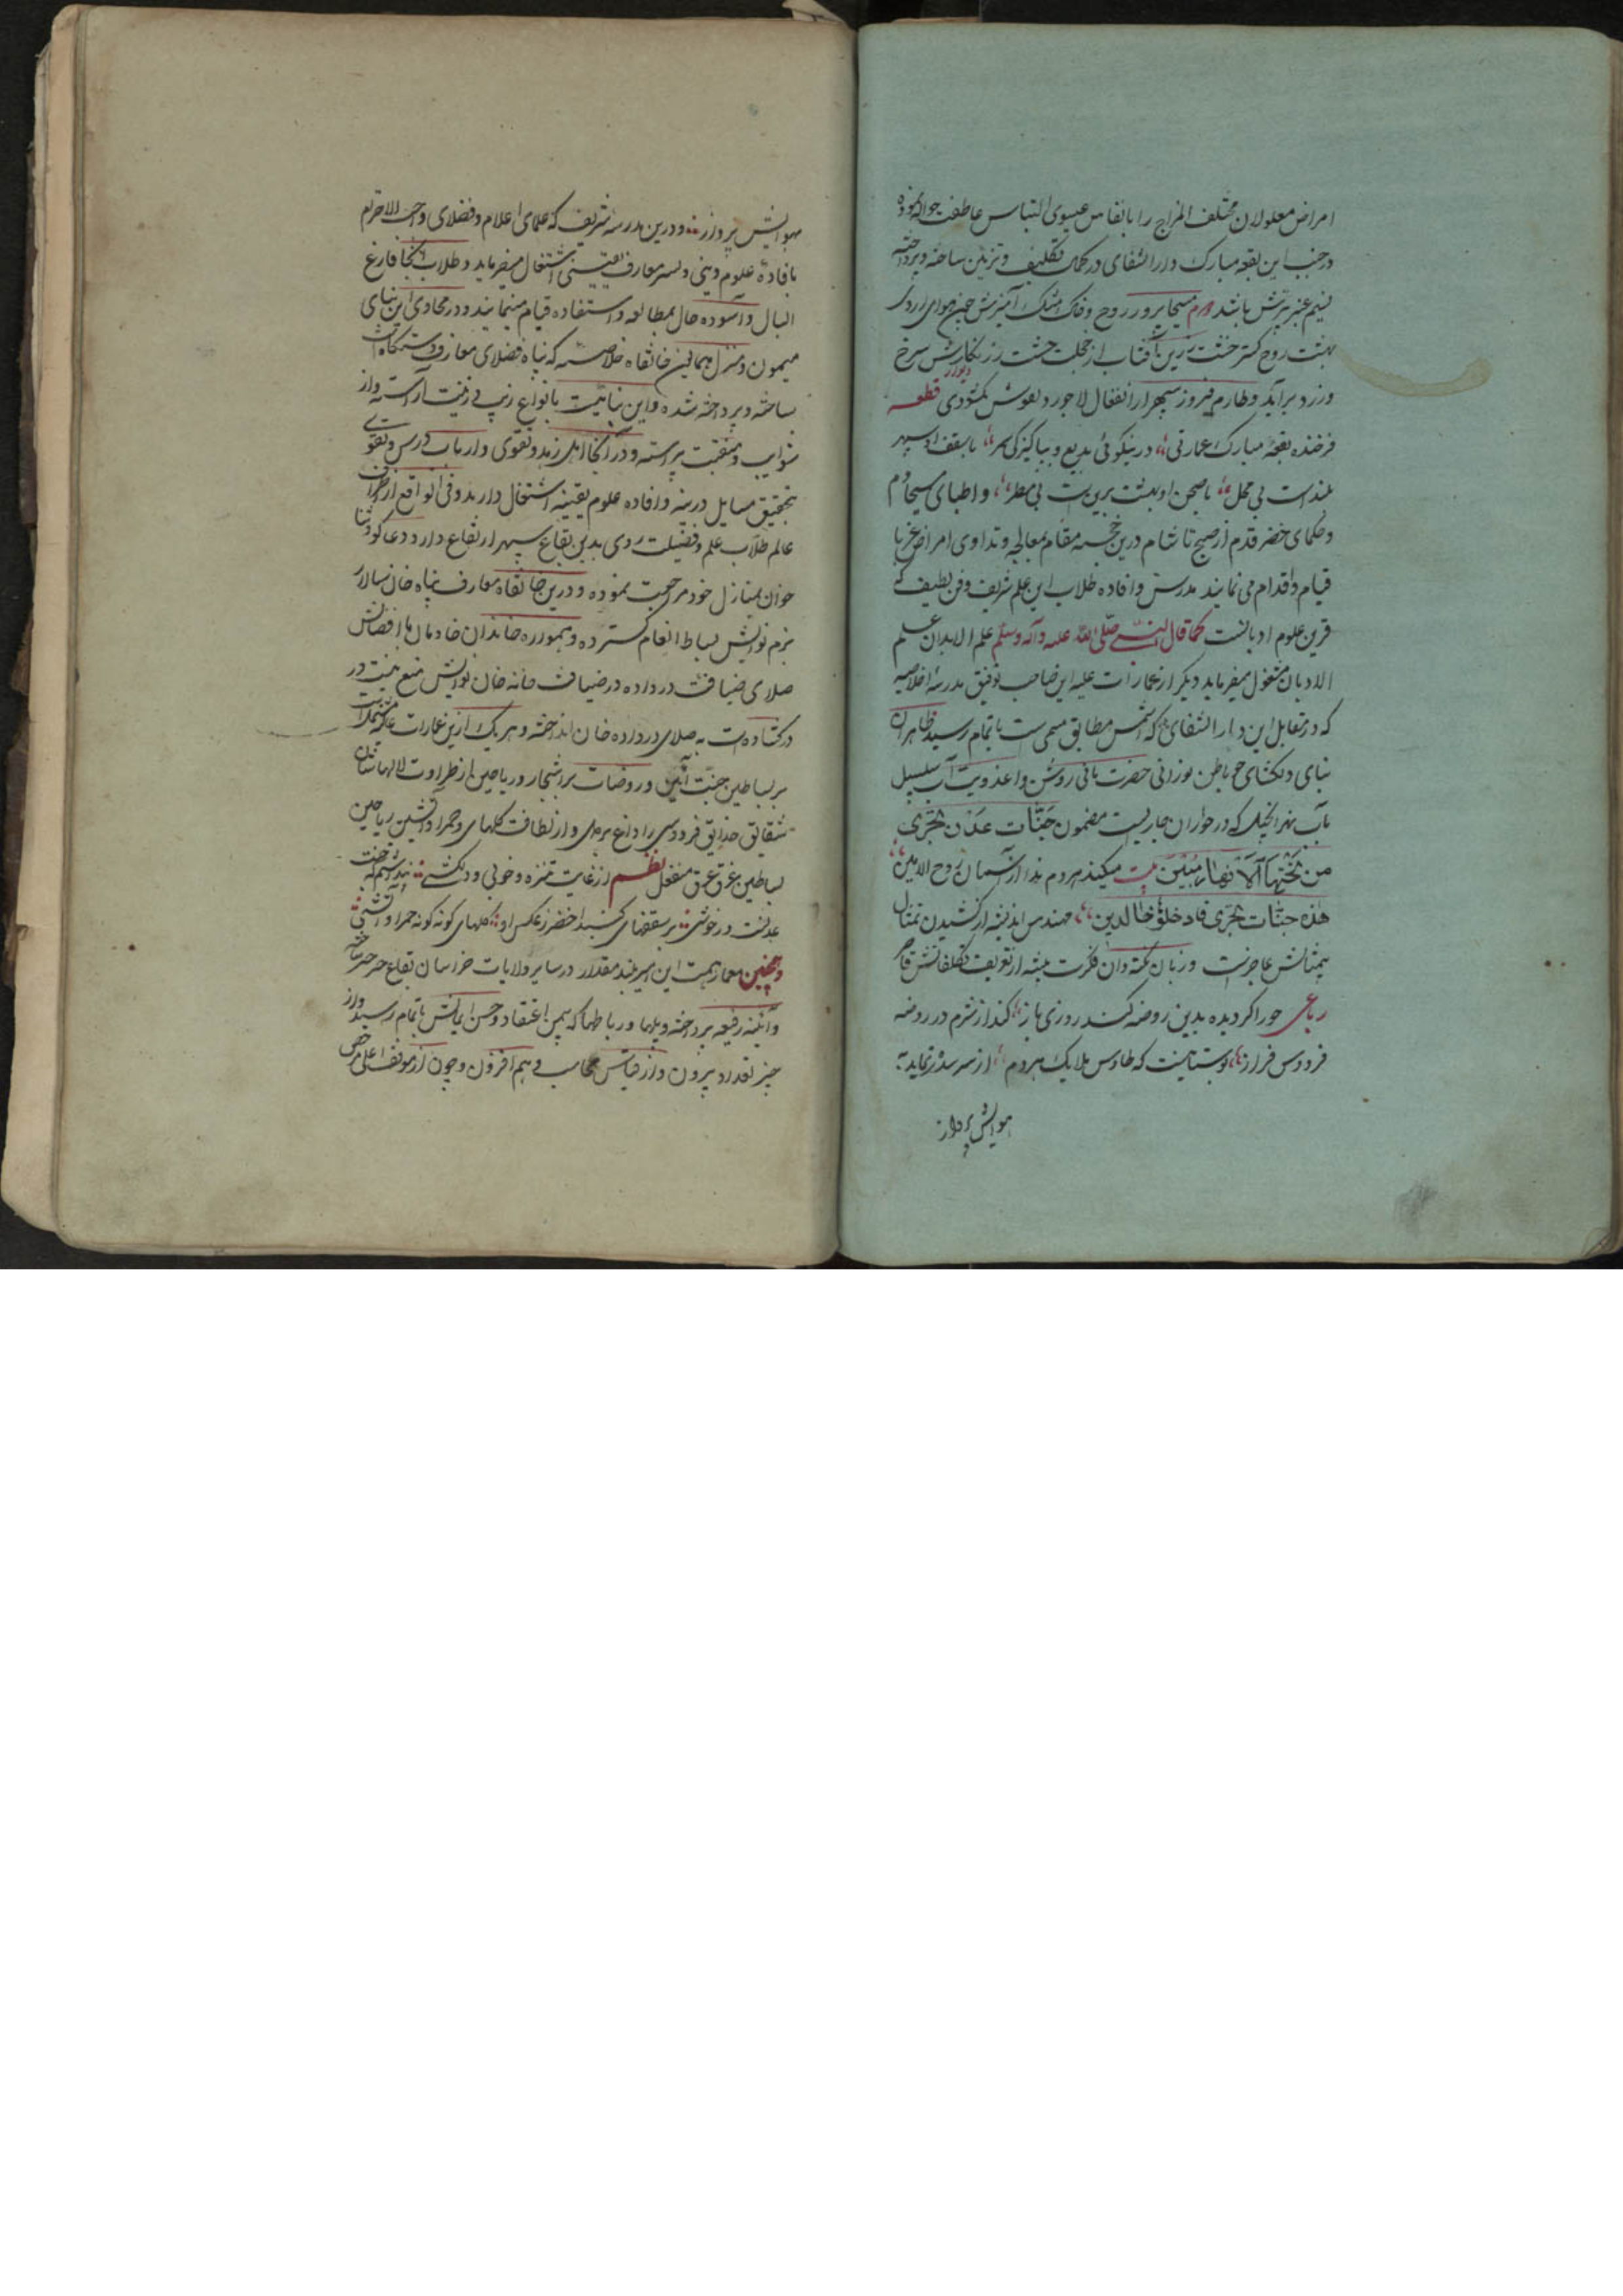 امراض معلولان مختلف المزاج را بانفاس عیسوی التباس عاطفت حواله نموده
در جنب این بقعه مبارک دار الشفای در کمال تکلیف و تزئین ساخته و پرداخته
نسیم عنبر بیزش باشد دم مسیحا پرور روح و خاک مشک آمیزش چون هوای اردی
بهشت روح گستر خشت زرین آفتاب از خجلت خشت زرنگارش سرخ
و زرد برآید و طارم فیروز سپهر از انفعال لاجورد نقوش دیوار کبودی قطعه
فرخنده بقعهٔ مبارک عمارتی در نیکوئی بدیع و بپاکیزگی سمر با سقف او سپهر
بلند است بی محل با صحن او بهشت برین است بی خطر و اطبای مسیحا دم
و حکمای خضر قدم از صبح تا شام درین خجسته مقام بمعالجه و تداوی امراض غربا
قیام و اقدام می نمایند مدرس و افاده طلاب این علم شریف و فن لطیف که
قرین علوم ادیانست کما قال النبی صلی الله علیه وآله وسلم علم الابدان علم
الادیان مشغول میفرماید دیگر از عمارات علیه این صاحب توفیق مدرسهٔ اخلاصیه
که در مقابل این دار الشفای که اسمش مطابق مسمی ست باتمام رسید ظاهر آن
بنای دلکشای چو باطن نورانی حضرت بانی روشن و اعذوبیت آب سلسبیل
بآب نهر انجیل که در حوار آن جاریست مضمون جنات عدن تجری
من تحتها الانهار مبین بیت میکند هر دم ندا از آسمان روح الامین
هذه جنات تجری فادخلوها خالدین مهندس اندیشه از کشیدن تمثال
بیمثالش عاجزست و زبان نکته دان فکرت پیشه از تعریف تکلفاتش قاصر
رباعی حورا گر دیده بدین روضه کند روزی باز کند از شرم در روضه
فردوس فراز بوستانیست که طاوس ملایک هر دم از سر سدره نماید به
هوایش پرواز
بهوایش پرواز و درین مدرسه شریف که علمای اعلام و فضلای واجب الاحترام
بافادهٔ علوم دینی و نشر معارف یقینی اشتغال میفرماید و طلاب آنجا فارغ
البال و آسوده حال بمطالعه و استفاده قیام مینمایند و در محاذی این بنای
میمون و منزل همایون خانقاه خلاصیه که پناه فضلای معارف دستگاه است
ساخته و پرداخته شده و این بنا نیست بانواع زیب و زینت آراسته و از
شوایب و منقصت پیراسته و در آنجا اهل زهد و تقوی و ارباب درس و فتوی
بتحقیق مسایل دینیه و افاده علوم یقینیه اشتغال دارند و فی الواقع از اطراف
عالم طلاب علم و فضیلت روی بدین بقاع سپهر ارتفاع دارد دعاگو و ثنا
خوان بمنازل خود مراجعت نموده و درین خانقاه معارف پناه خان سالار
بزم نوایش بساط انعام گسترده و همواره خاندان خادمان با افضالش
صلای ضیافت در داده در ضیافت خانه خان نوایش منع نیست در
در گشاده است به صلای در داده خان انداخته و هر یک ازین عمارات عالیه مشتملست
بر بساطین جنت آئین و روضات پر اشجار و ریاحین از طراوت لالهاشان
شقایق حدایق فردوسی را داغ بر دل و از لطافت گلهای حمرا و آتشین ریاحین
بساطین غرق عرق منفعل نظم از غایت تنزه و خوبی و دلکشی
عدلت در خوشی بر سقفهای گنبد اخضر ز عکس او گلهای گونه گونه حمرا و آتشی
وهمچنین معمار همت این امیر بلند مقدار در سایر ولایات خراسان بقاع خیر ساخته
و ابنیه رفیعه پرداخته و پلها و رباطها که بیمن اعتقاد و حسن ایمانش باتمام رسید و از
حیز تعداد بیرون و از قیاس محاسب وهم افزون و چون از موقف اعلی